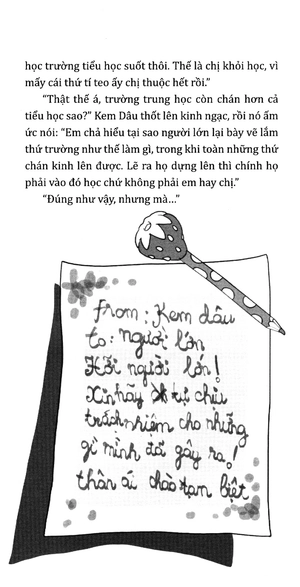 học trường tiểu học suốt thôi. Thế là chị khỏi học, vì
mấy cái thứ tí teo ấy chị thuộc hết rồi.”
“Thật thế á, trường trung học còn chán hơn cả
tiểu học sao?” Kem Dâu thốt lên kinh ngạc, rồi nó ấm
ức nói: “Em chả hiểu tại sao người lớn lại bày vẽ lắm
thứ trường như thế làm gì, trong khi toàn những thứ
chán kinh lên được. Lẽ ra họ dựng lên thì chính họ
phải vào đó học chứ không phải em hay chị.”
“Đúng như vậy, nhưng mà...”
From: Kem dâu
to: người lớn
Hỡi người lớn!
Xin hãy tự chịu
trách nhiệm cho những
gì mình đã gây ra!
thân ái chào tạm biệt